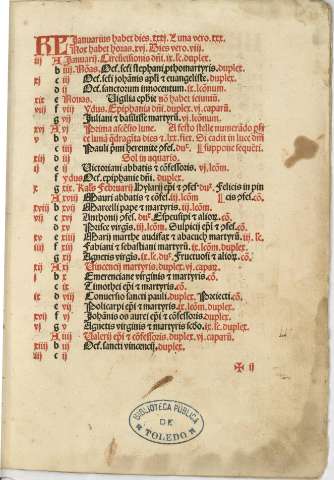 KL Januarius habet dies .xxxj. Luna vero .xxx.
Nox habet horas .xvj. Dies vero .viij.
iij A Januarij. Circũcisionis dñi. ix. lc. duplex.
b iiij Nõas. Oct. scti stephani pthomartyris. duplex.
xj c iij Oct. scti johãnis apli & euangeliste. duplex.
d ij Oct. sanctorum innocentum. ix. lcõnum.
xix e Nonas. Vigilia ephie nõ habet ieiuniũ.
viij f viij Ydus. Epiphania dñi. duplex. vj. caparũ.
g vij Juliani & basilisse martyrũ. vj. lcõnum.
xvj A vj Prima ascẽsio lune. A festo stelle numerãdo pst
v b v
c iiij Pauli pmi heremite psest. duc.
xiij d iij Sol in aquario.
ij e ij Victoriani abbatis & cõfessoris. vj. lcõnum.
f ydus Oct. epiphanie dñi. duplex.
x g xix Kals Februarij Hylarij epi & psest duc. Felicis in pin
A xviij Mauri abbatis & cõfes. iij. lcõm. cis psest. cõ.
xviij b xvij Marcelli pape & martyris. iij. lcõm.
vij c xvj Anthonij psest. duc. Speusipi & alioꝝ. cõ.
d xv Prisce virgis. iij. lcõm. Sulpicij epi & psest. cõ.
xv e xiiij Marij marthe audifax & abacuch martyrũ. iij. lc.
iiij f xiij Fabiani & sebastiani martyrũ. ix. lcõm. duplex.
g xij Agnetis virgis. ix. lc. duc. Fructuosi & alioꝝ. cõ.
xij A xj Vincencij martyris. duplex. vj. capar.
j b x Emerenciane virginis & martyris. cõ.
c ix Timothei epi & martyris. cõ.
ix d viij Conuersio sancti pauli. duplex. Proiecti. cõ.
e vij Policarpi epi & martyris. ix. lcõm. duplex.
xvij f vj Johãnis os aurei epi & cõfessoris. duplex.
vj g v Agnetis virginis & martyris scõo. ix. lc. duplex.
A iiij Valerij epi & cõfessoris. duplex. vj. caparũ.
xiiij b iij Oct. sancti vincencij. duplex.
iij c ij
✠ ij
BIBLIOTECA PÚBLICA
DE
TOLEDO